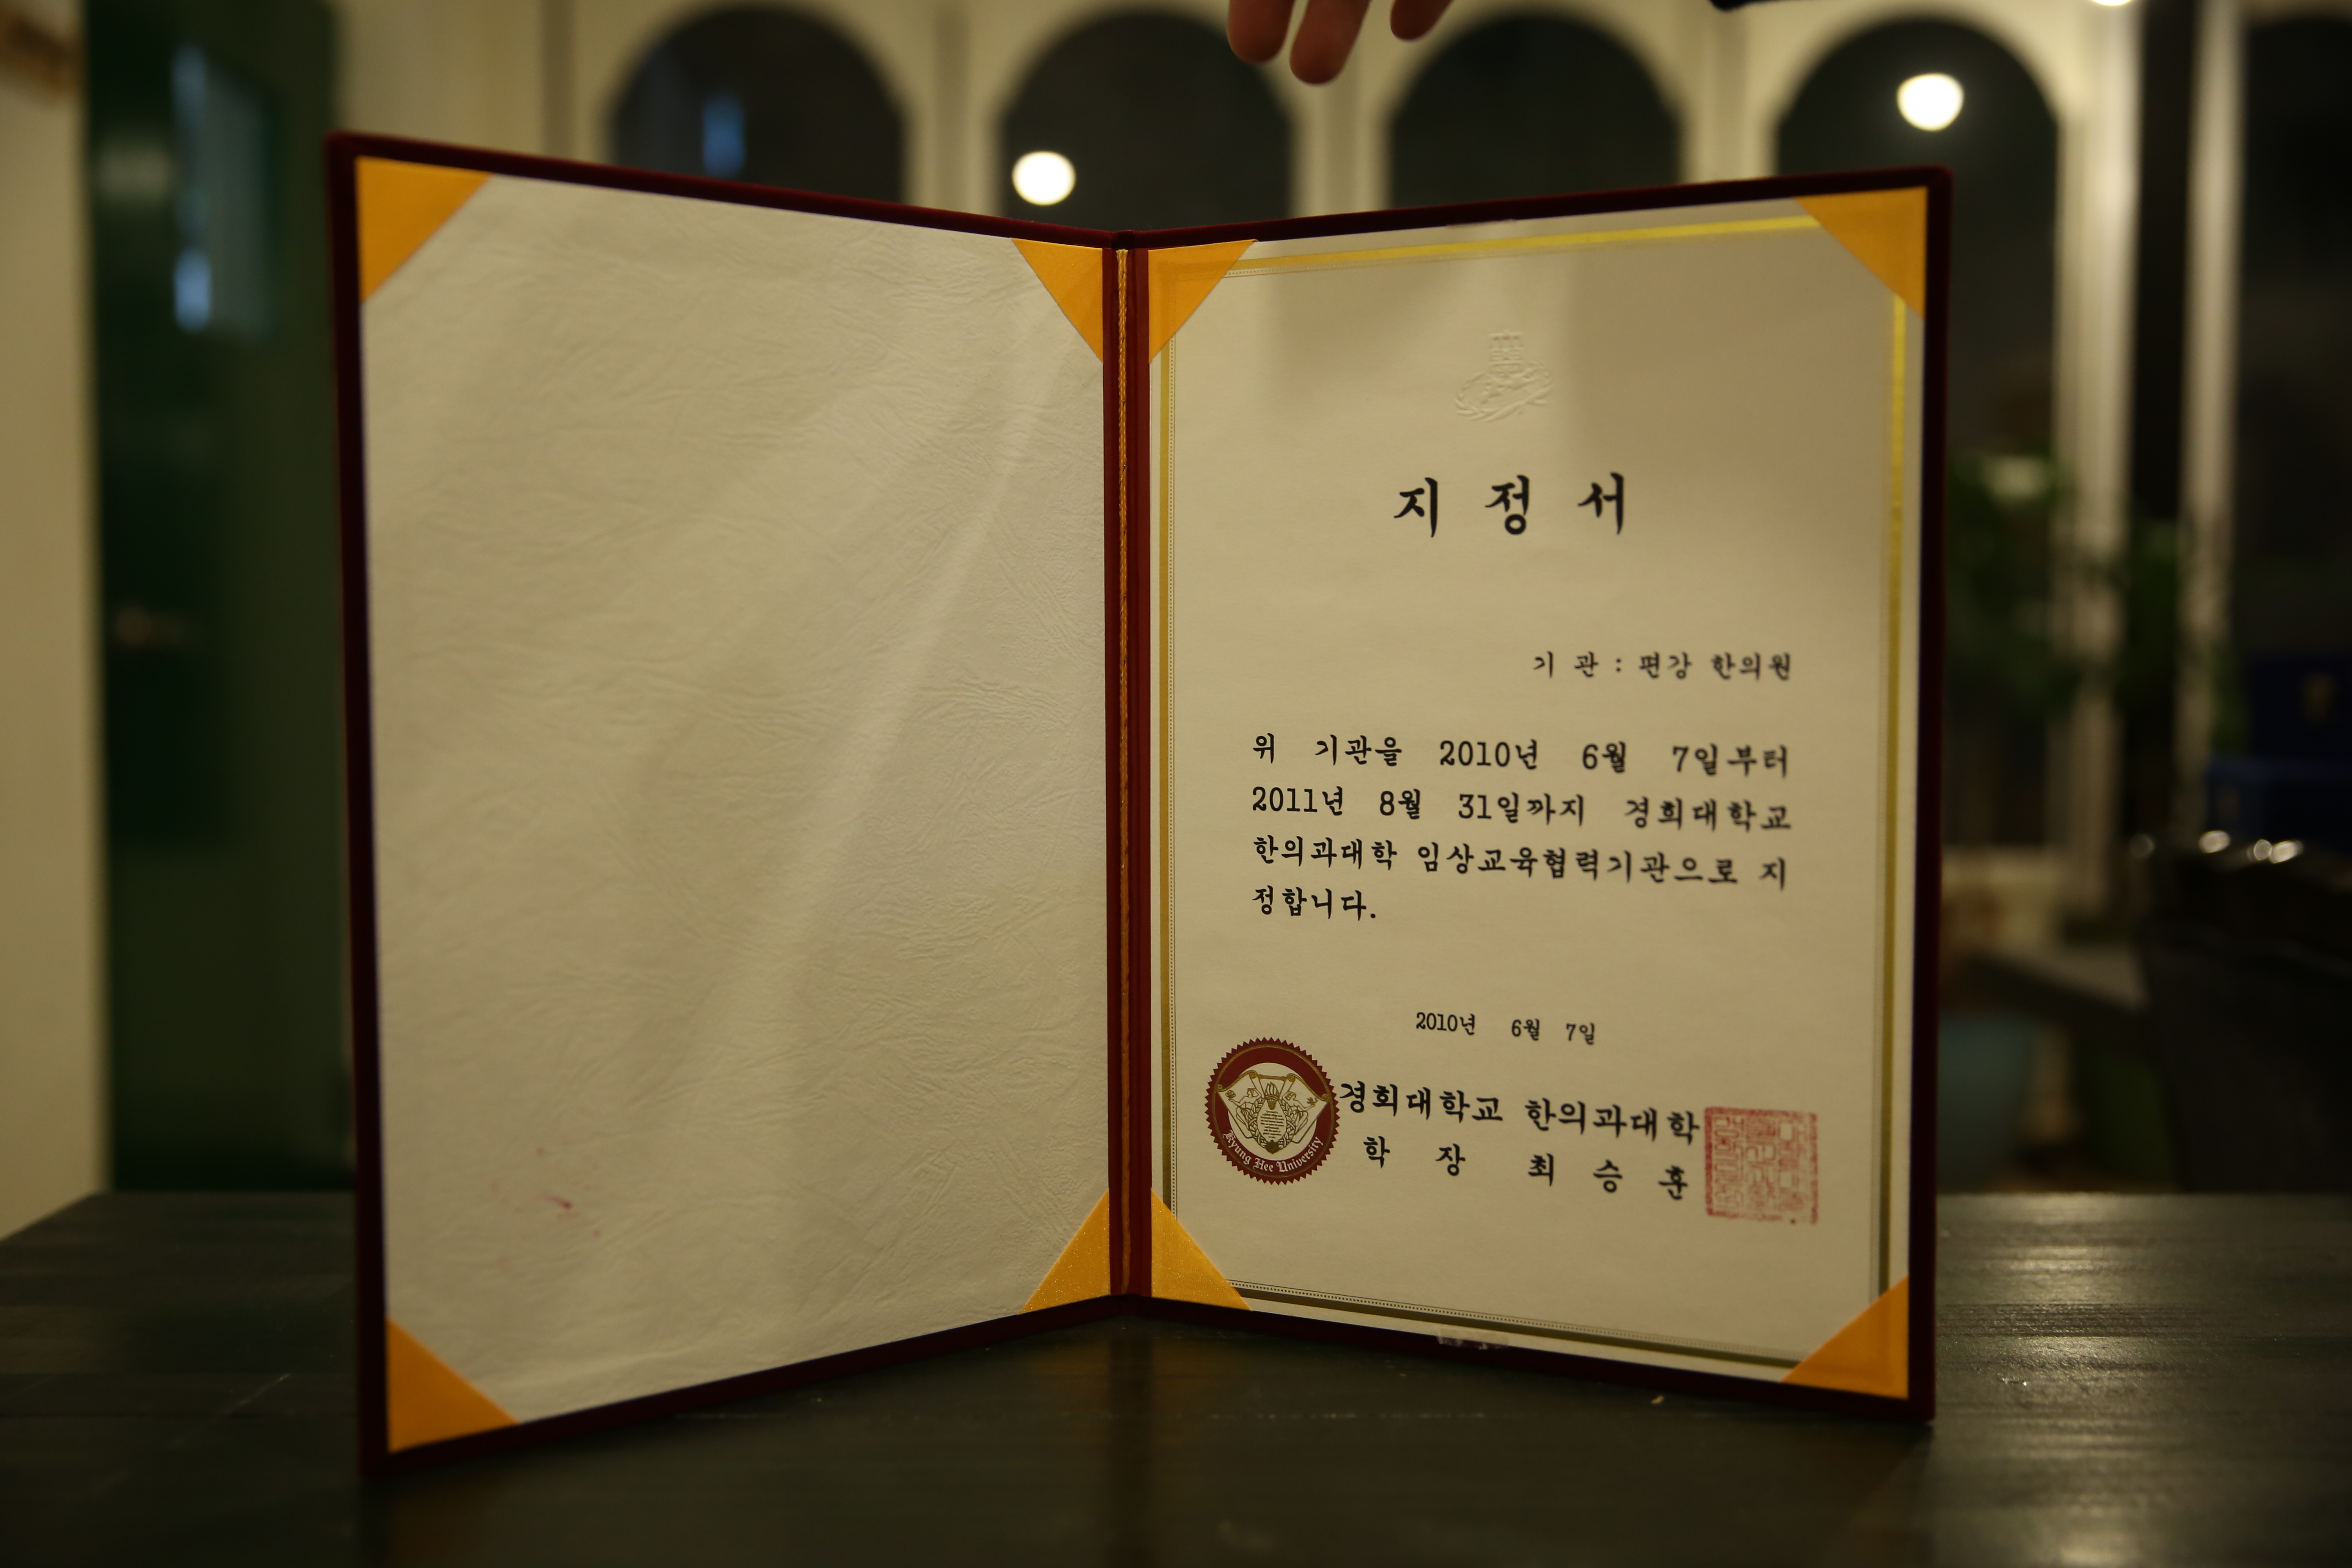 지 정 서
기 관 : 편강 한의원
위 기관을 2010년 6월 7일부터
2011년 8월 31일까지 경희대학교
한의과대학 임상교육협력기관으로 지
정합니다.
2010년 6월 7일
경희대학교 한의과대학
학 장 최 승 훈
Kyung Hee University